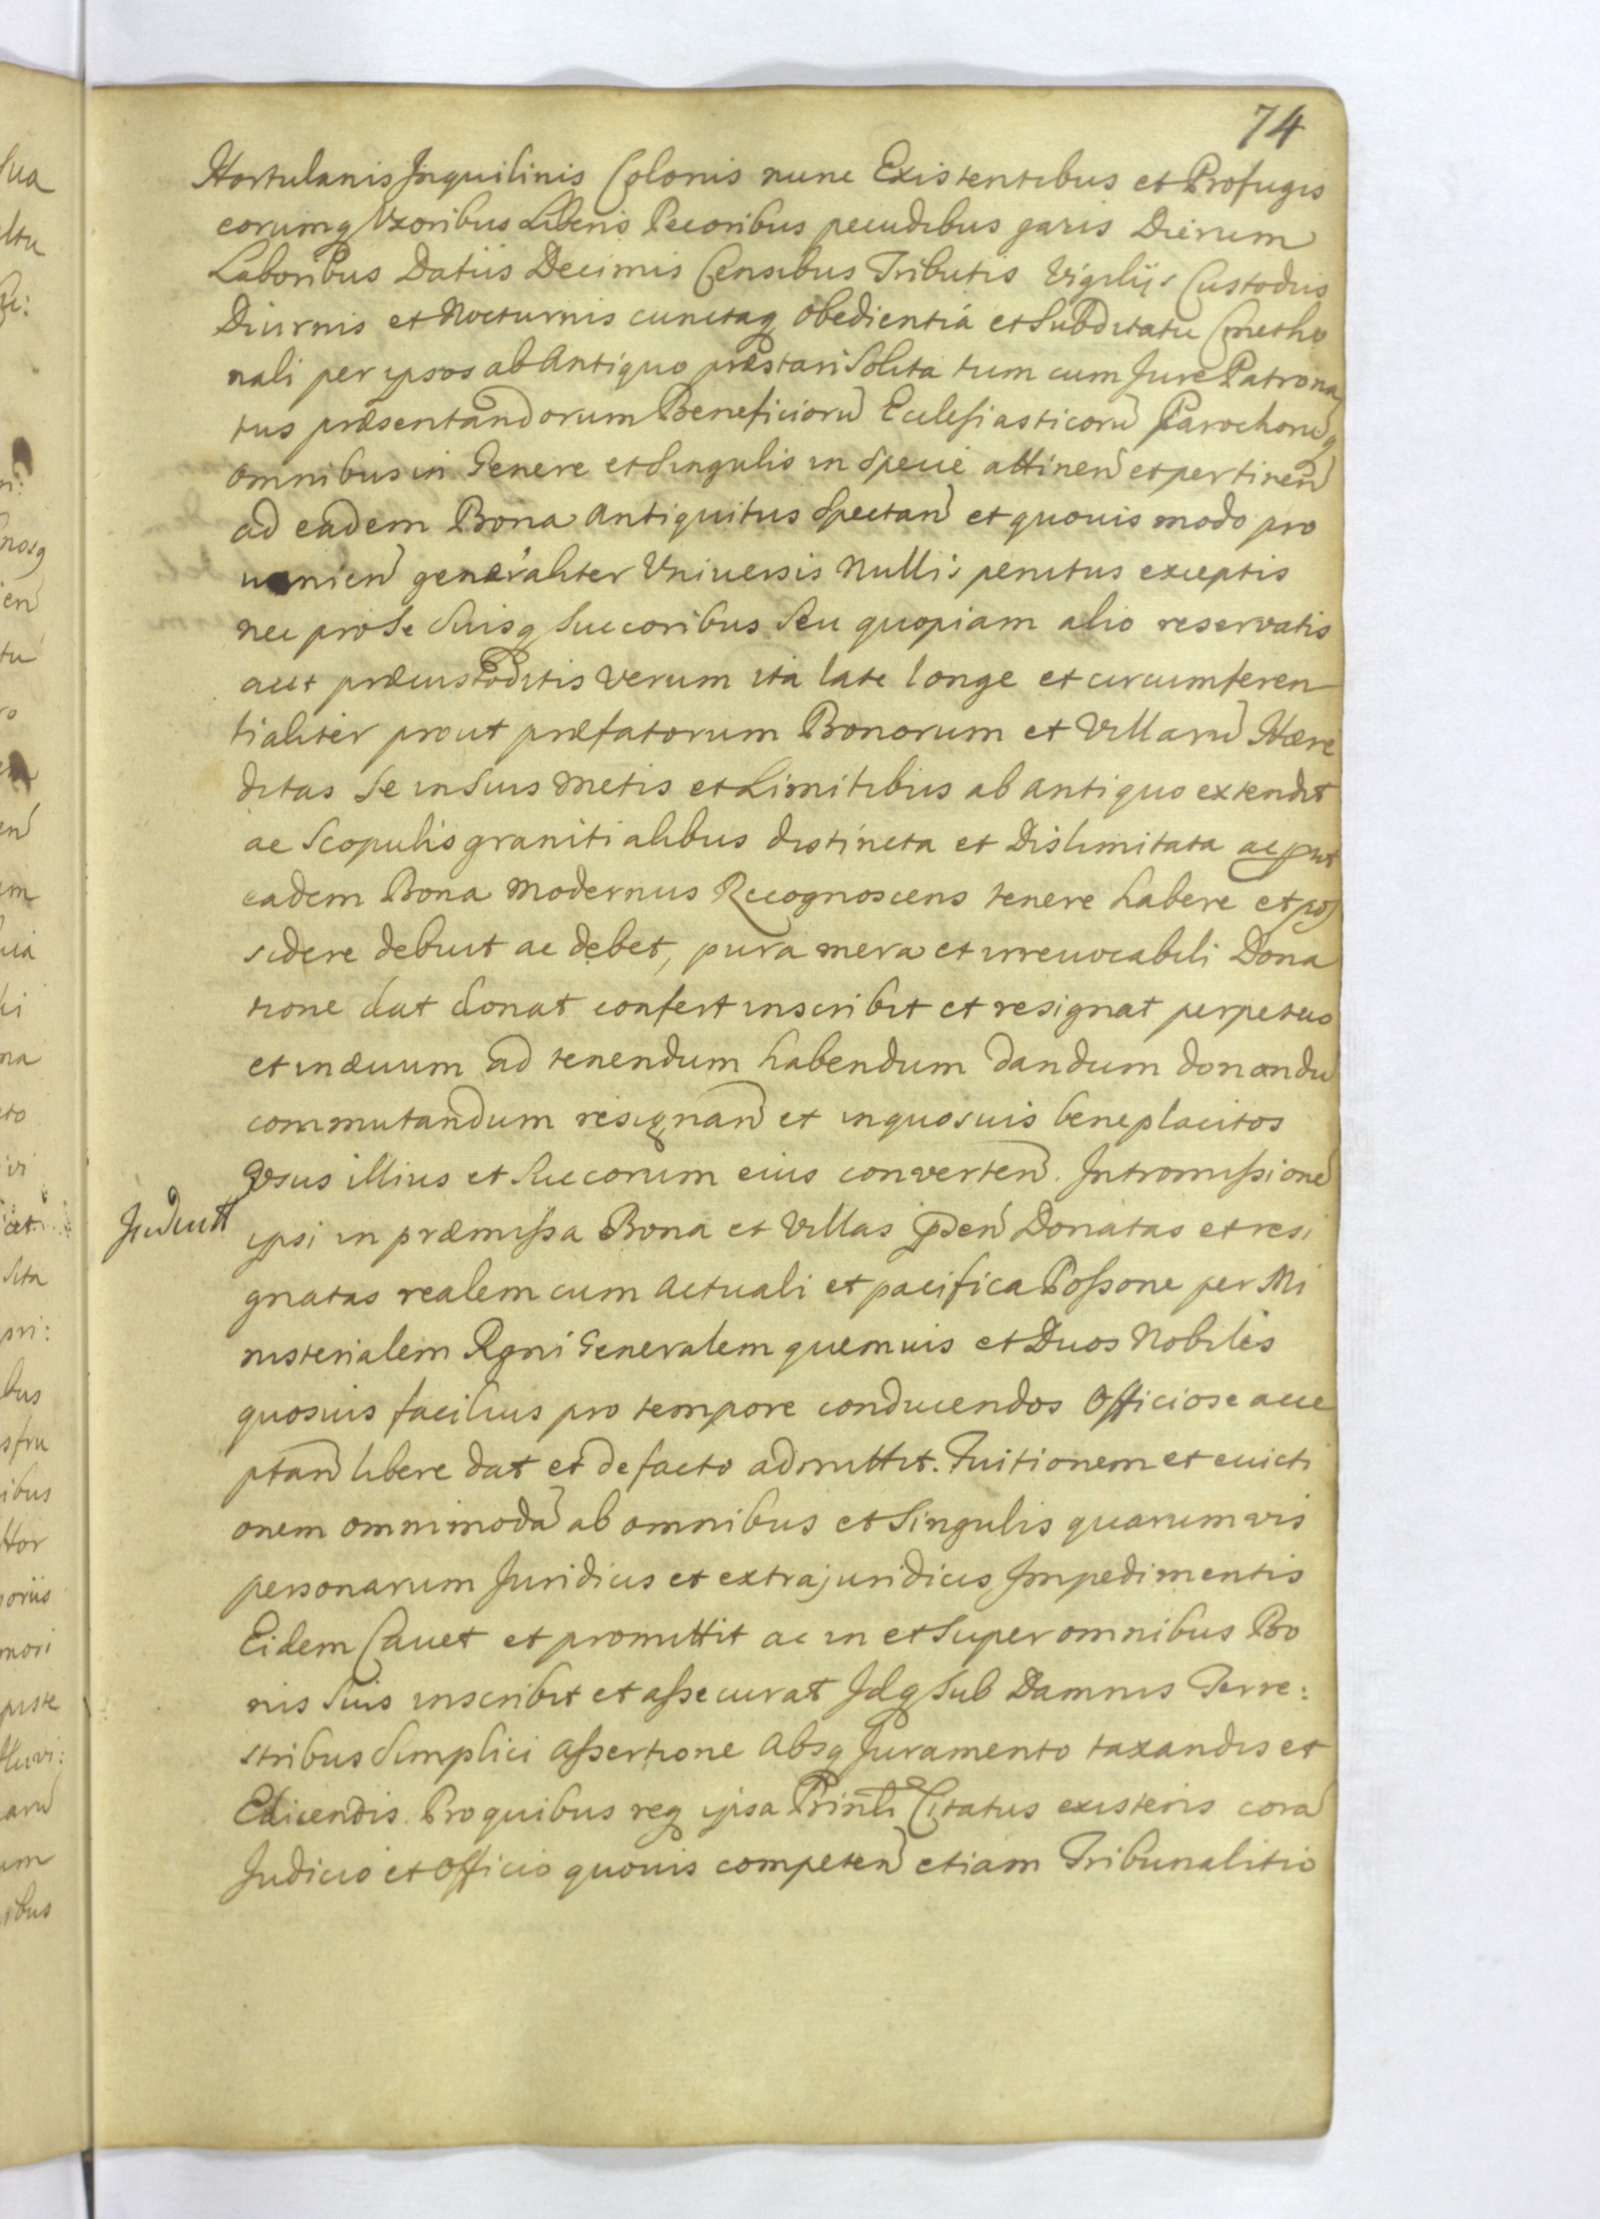 74
Hortulanis Inquilinis Colonis nunc Existentibus et Profugis
eorumq Vxoribus Liberis Pecoribus pecudibus gazis Dierum
Laboribus Datiis Decimis Censibus Tributis Vigiliis Custodiis
Diurnis et Nocturnis cunctaq obedientia et Subditatu Cmetho
nali per ipsos ab Antiquo præstari Solita tum cum Jure Patrona
tus præsentandorum Beneficioru Ecclesiasticoru Parochoruq
omnibus in Genere et Singulis in Specie attinen et pertinen
ad eadem Bona Antiquitus Spectan et quouis modo pro
uenien generaliter Vniuersis Nullis penitus exceptis
nec pro Se Suisq Succoribus Seu quopiam alio reservatis
aut præcustoditis Verum ita late longe et circumferen
tialiter prout præfatorum Bonorum et Villaru Hære
ditas Se in Suis Metis et Limitibus ab antiquo extendit
ac Scopulis granitialibus distincta et Dislimitata ac prut
eadem Bona Modernus Recognoscens tenere habere et pos
sidere debuit ac debet, pura mera et irreuocabili Dona
tione dat donat confert inscribit et resignat perpetuo
et in æuum ad tenendum habendum dandum donandu
commutandum resignan et in quosuis beneplacitos
Vsus illius et Succorum eius converten. Intromissione
ipsi in præmissa Bona et Villas psen Donatas et resi
gnatas realem cum Actuali et pacifica Possone per Mi
nisterialem Rgni Generalem quemuis et Duos Nobiles
quosuis facilius pro tempore conducendos Officiose acce
ptan libere dat et de facto admittit. Tuitionem et euicti
onem omnimoda ab omnibus et Singulis quarumvis
personarum Juridicis et extrajuridicis Impedimentis
Eidem Cauet et promittit ac in et Super omnibus Bo
nis Suis inscribit et assecurat Idq Sub Damnis Terre:
stribus Simplici Assertione Absq Juramento taxandis et
Edicendis. Pro quibus req ipsa Prinli Citatus existens cora
Judicio et Officio quouis competen etiam Tribunalitio